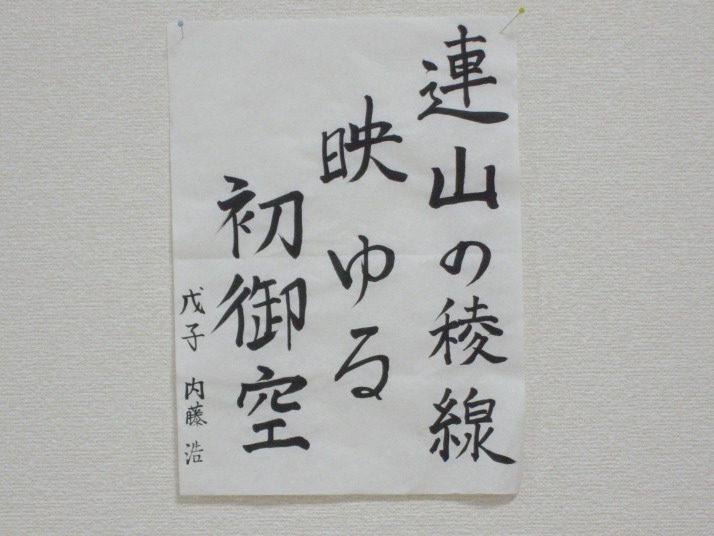 連山の稜線
映ゆる
初御空
戊子 内藤浩